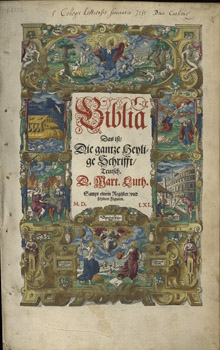 Biblia
Das ist/
Die gantze Heyli-
ge Schrifft/
Teutsch.
D. Mart. Luth.
Sampt einem Register vnd
schönen Figuren.
M. D. LXI.